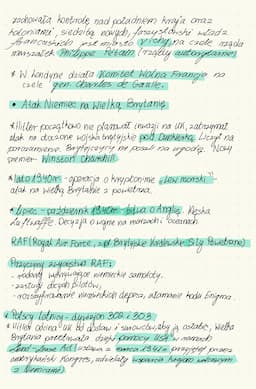 zachowała kontrolę nad południem kraju oraz
koloniami, siedzibą nowych, faszystowski władz
francuskich jest miasto Vichy na czele rządu
marszałek Philippe Pétain (rządy autorytarne)
* W Londynie działa Komitet Wolna Francja na
czele gen. Charles de Gaulle.
• Atak Niemiec na Wielką Brytanię
* Hitler początkowo nie planował inwazji na UK, zatrzymał
atak na otoczone wojska brytyjskie pod Dunkierką. Liczył na
porozumienie. Brytyjczycy nie poszli na ugodę. Nowy
premier Winston Churchill
* lato 1940r - operacja o kryptonimie „Lew morski"
atak na Wielką Brytanię z powietrza.
* Lipiec - październik 1940r bitwa o Anglię. Klęska
Luftwaffe. Decyzja o wojnie na morzach i oceanach
RAF (Royal Air Force, Brytyjskie Królewskie Siły Powietrzne)
Przyczyny zwycięstwa RAF:
- radary wykrywające niemieckie samoloty.
- zasługi obcych pilotów,
- rozszyfrowanie niemieckich depesz, złamanie kodu Enigma.
* Polscy lotnicy - dywizjon 302 i 303
* Hitler odcina UK od dostaw i surowców, by ją osłabić, Wielka
Brytania przetrwała dzięki pomocy USA w ramach
Lend-Lease Act (ustawa z marca 1941r przyjęta przez
amerykański Kongres, udzielały wsparcia krajom walczącym
z Niemcami)